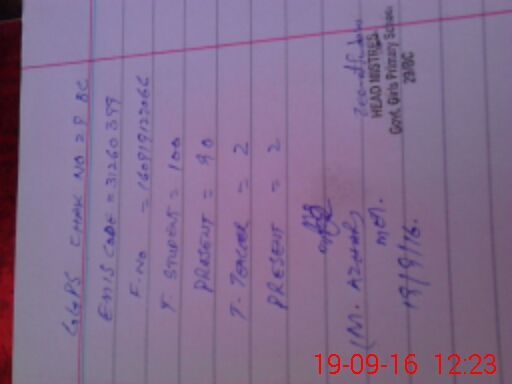 GGPS CHAK NO 29 BC
EMIS CODE = 31260399
F. No =
T. STUDENT = 100
PRESENT = 90
T. TEACHER = 2
PRESENT = 2
(M. AZHAR)
MEA.
19/9/16.
HEAD MISTRES
Govt. Girls Primary School
29/BC
19-09-16 12:23